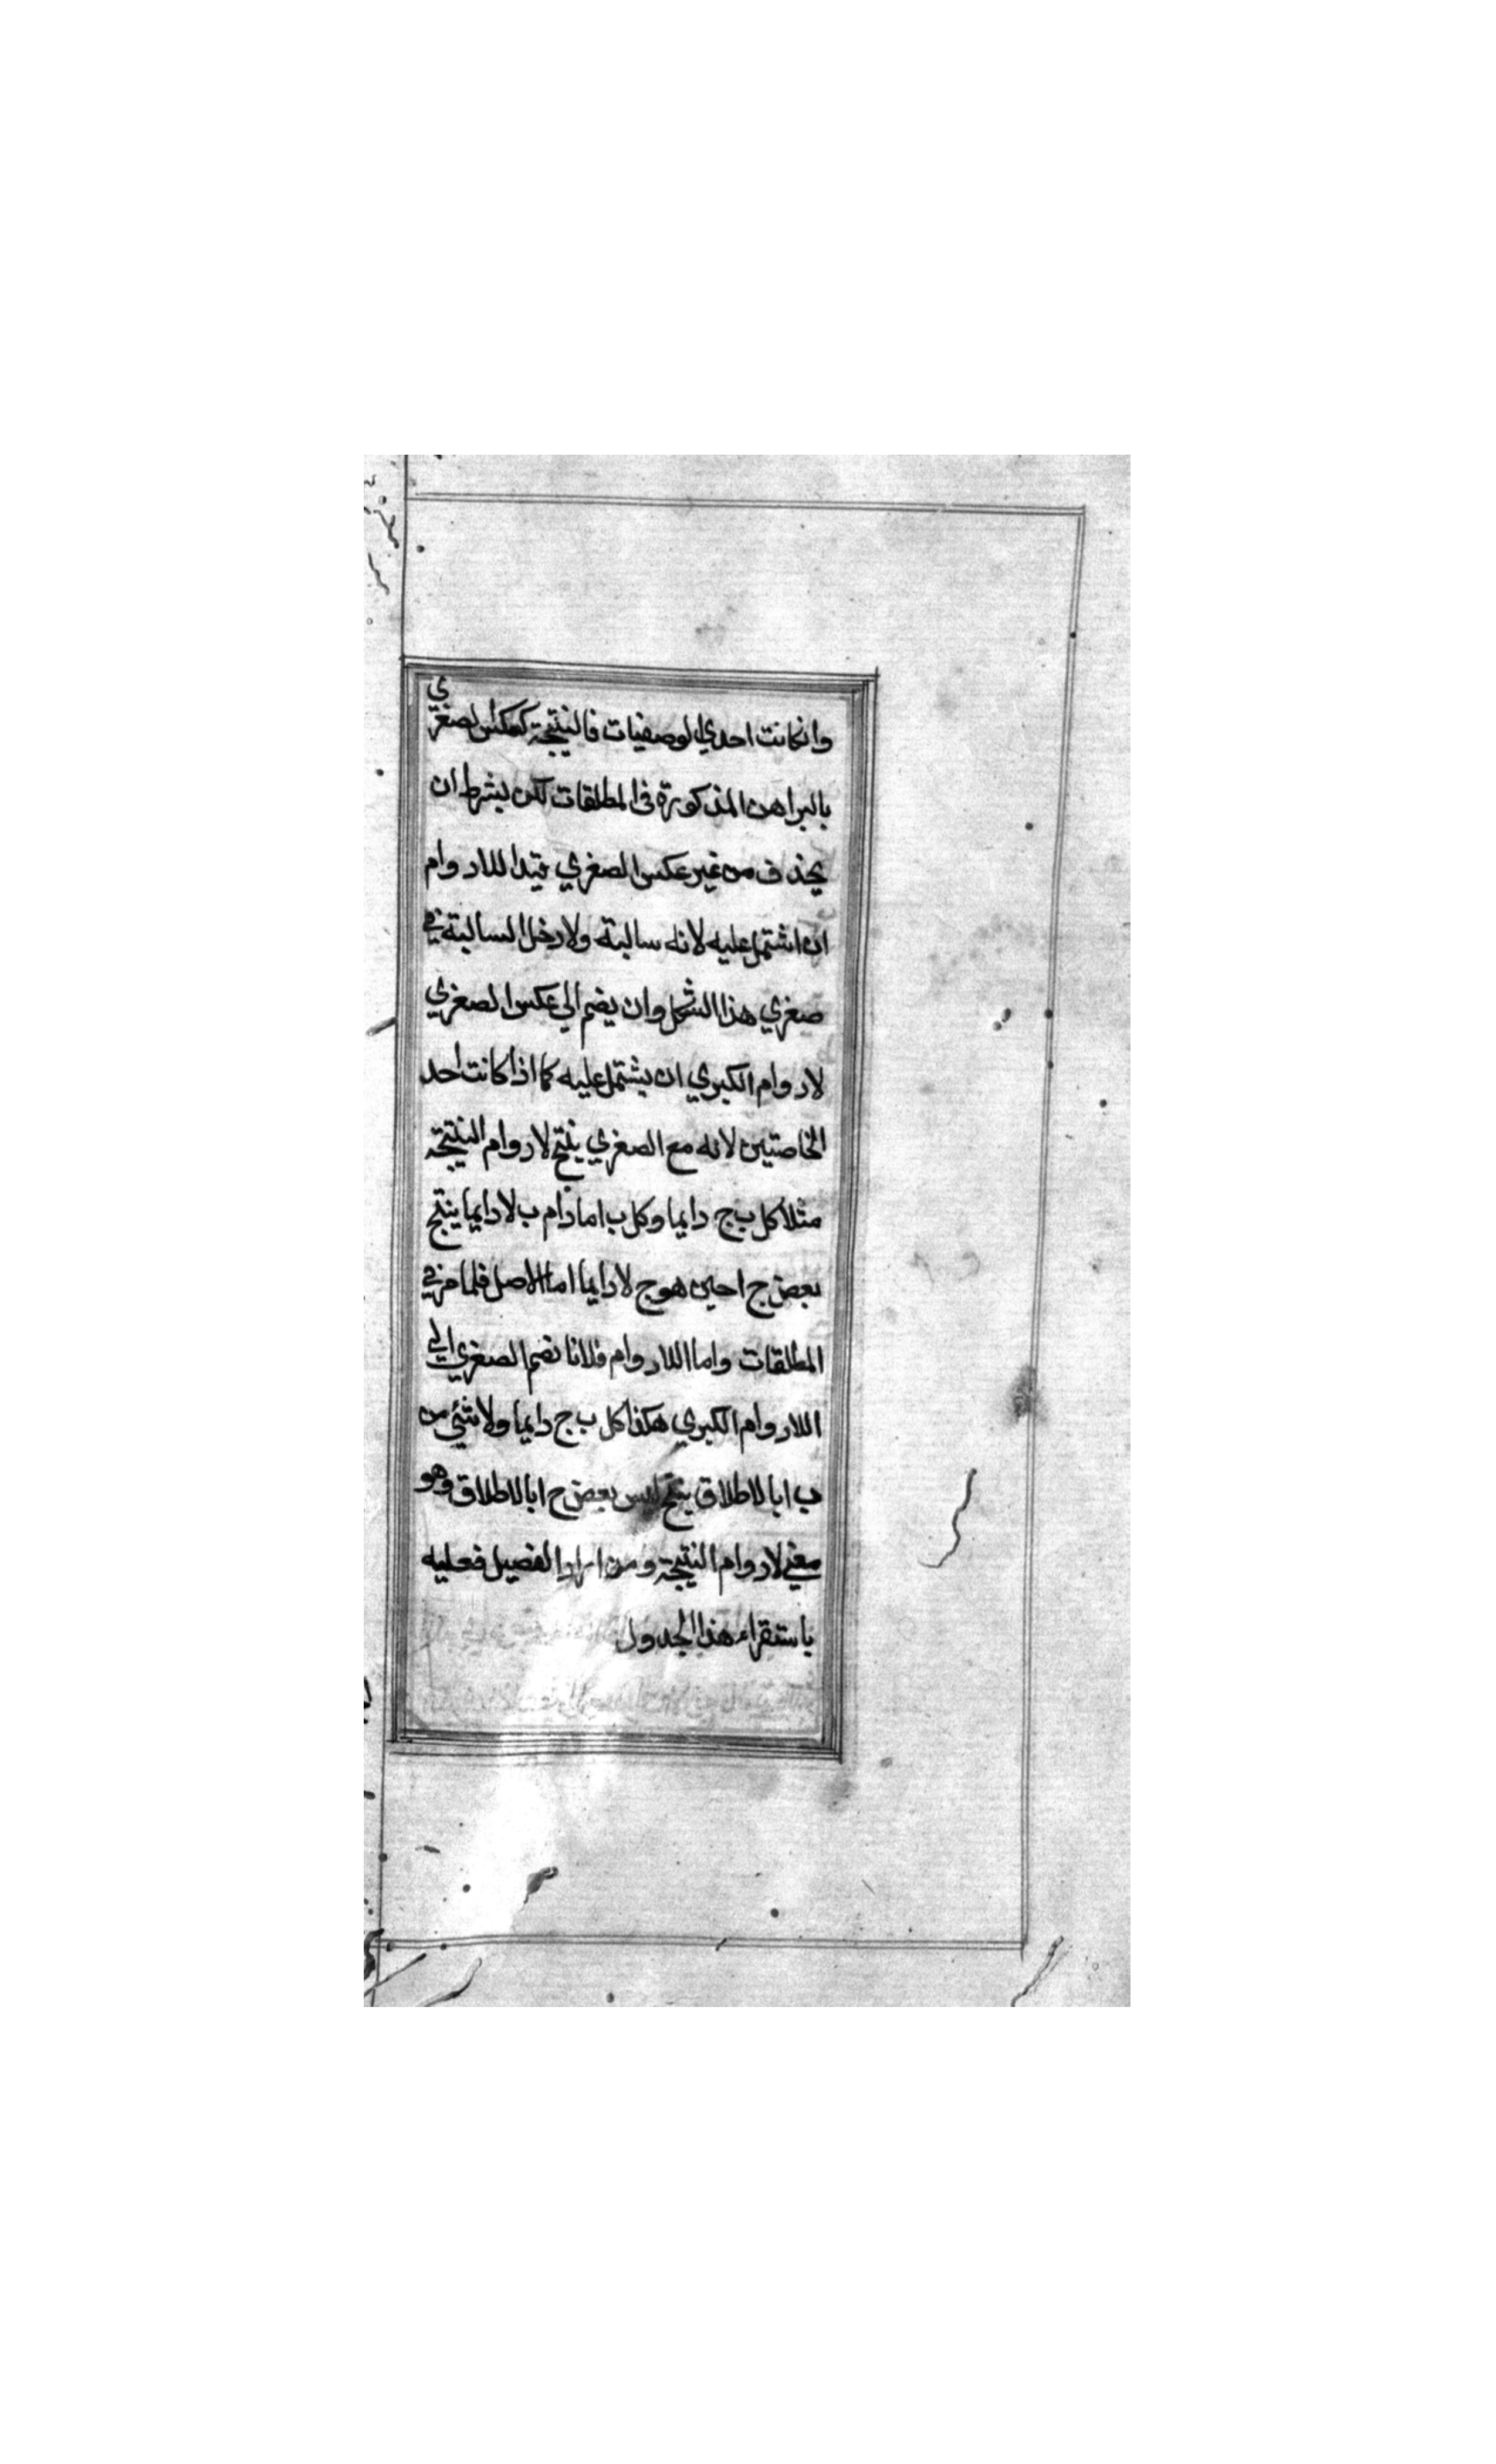 وانكانت احدي الوصفيات فالنتيجة كعكس الصغري
بالبراهن المذكورة في المطلقات لكن بشرط ان
يحذف من غير عكس الصغري قيد اللادوام
ان اشتمل عليه لانه سالبة ولادخل السالبة في
صغري هذا الشكل وان يضم الي عكس الصغري
لادوام الكبري ان يشتمل عليه كما اذا كانت احد
الخاصتين لانه مع الصغري ينتج لادوام النتيجة
مثلا كل ب ج دايما وكل ب ا مادام ب لا دايما ينتج
بعض ج ا حين هو ج لا دايما اما الاصل فلما مر في
المطلقات واما اللادوام فلانا نضم الصغري الي
اللادوام الكبري هكذا كل ب ج دايما ولا شئي من
ب ا بالاطلاق ينتج ليس بعض ج ا بالاطلاق وهو
معني لادوام النتيجة ومن اراد الفصيل فعليه
باستقراء هذا الجدول